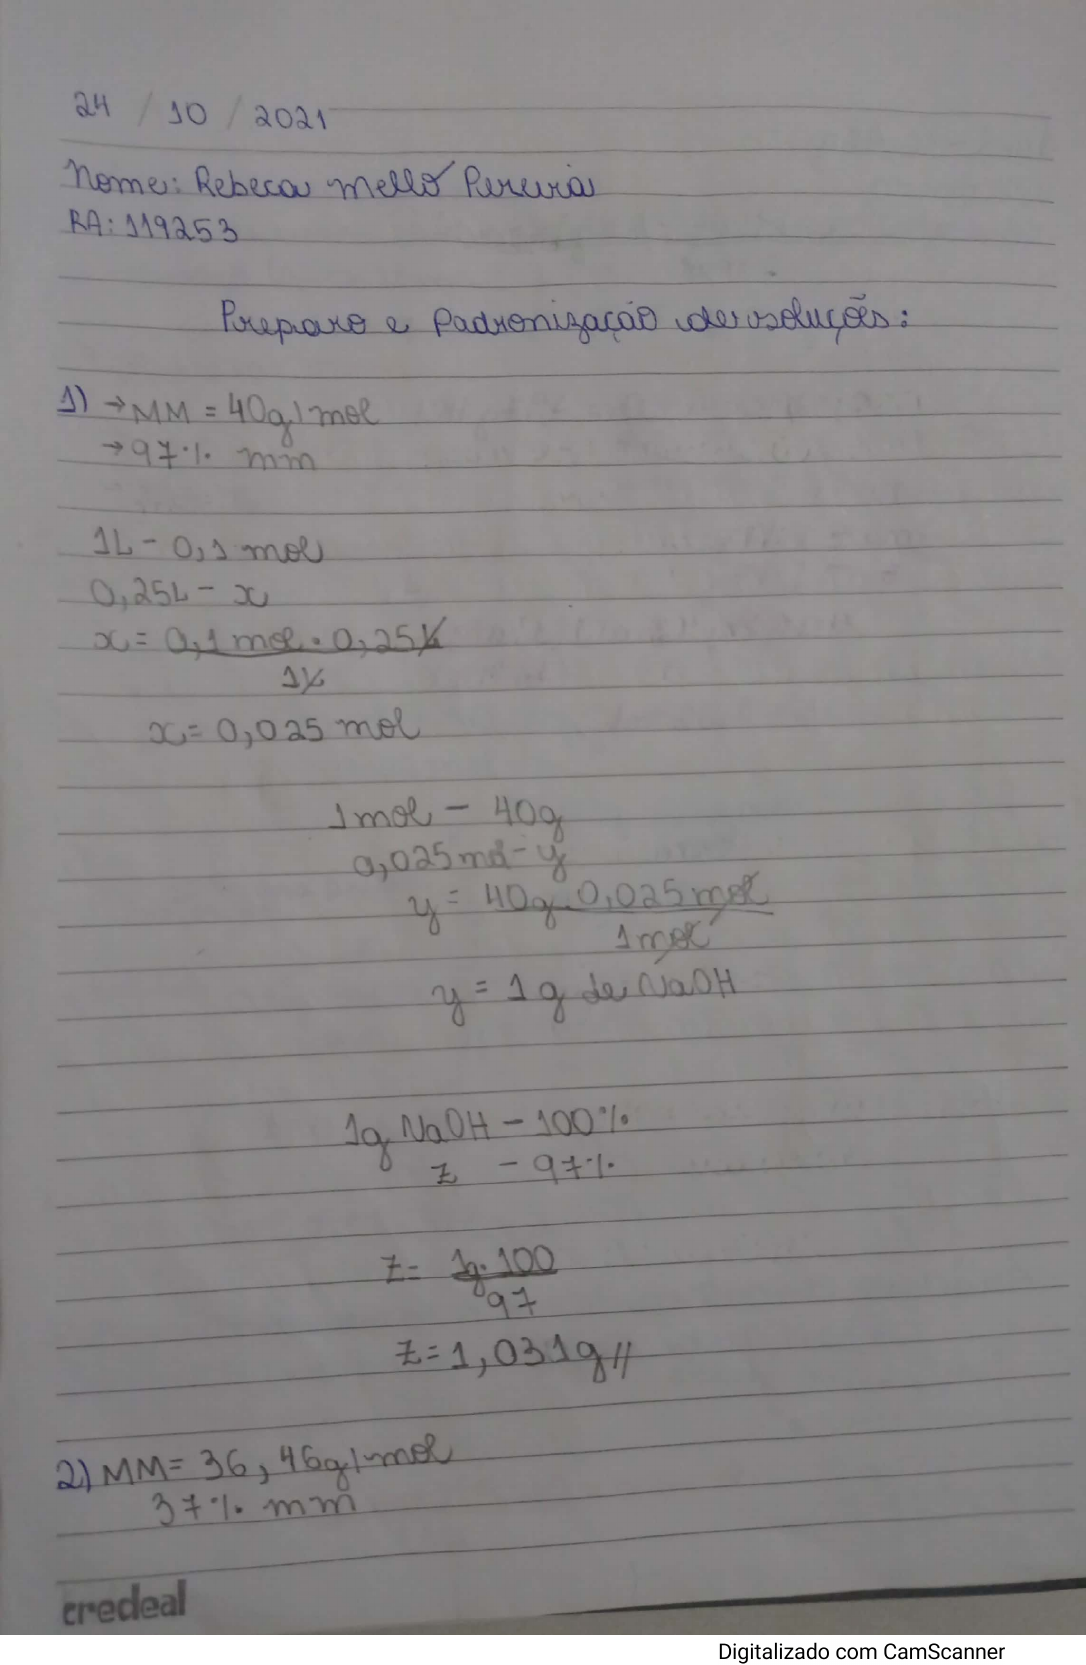 24 / 10 / 2021
Nome: Rebeca Mello Pereira
RA: 119253
Preparo e Padronização de soluções:
1) → MM = 40g/mol
→ 97% mm
1L - 0,1 mol
0,25L - x
x = 0,1 mol · 0,25L
1L
x = 0,025 mol
1mol - 40g
0,025mol - y
y = 40g · 0,025mol
1mol
y = 1g de NaOH
1g NaOH - 100%
z - 97%
z = 1g · 100
97
z = 1,031g//
2) MM = 36,46g/mol
37% mm
credeal
Digitalizado com CamScanner